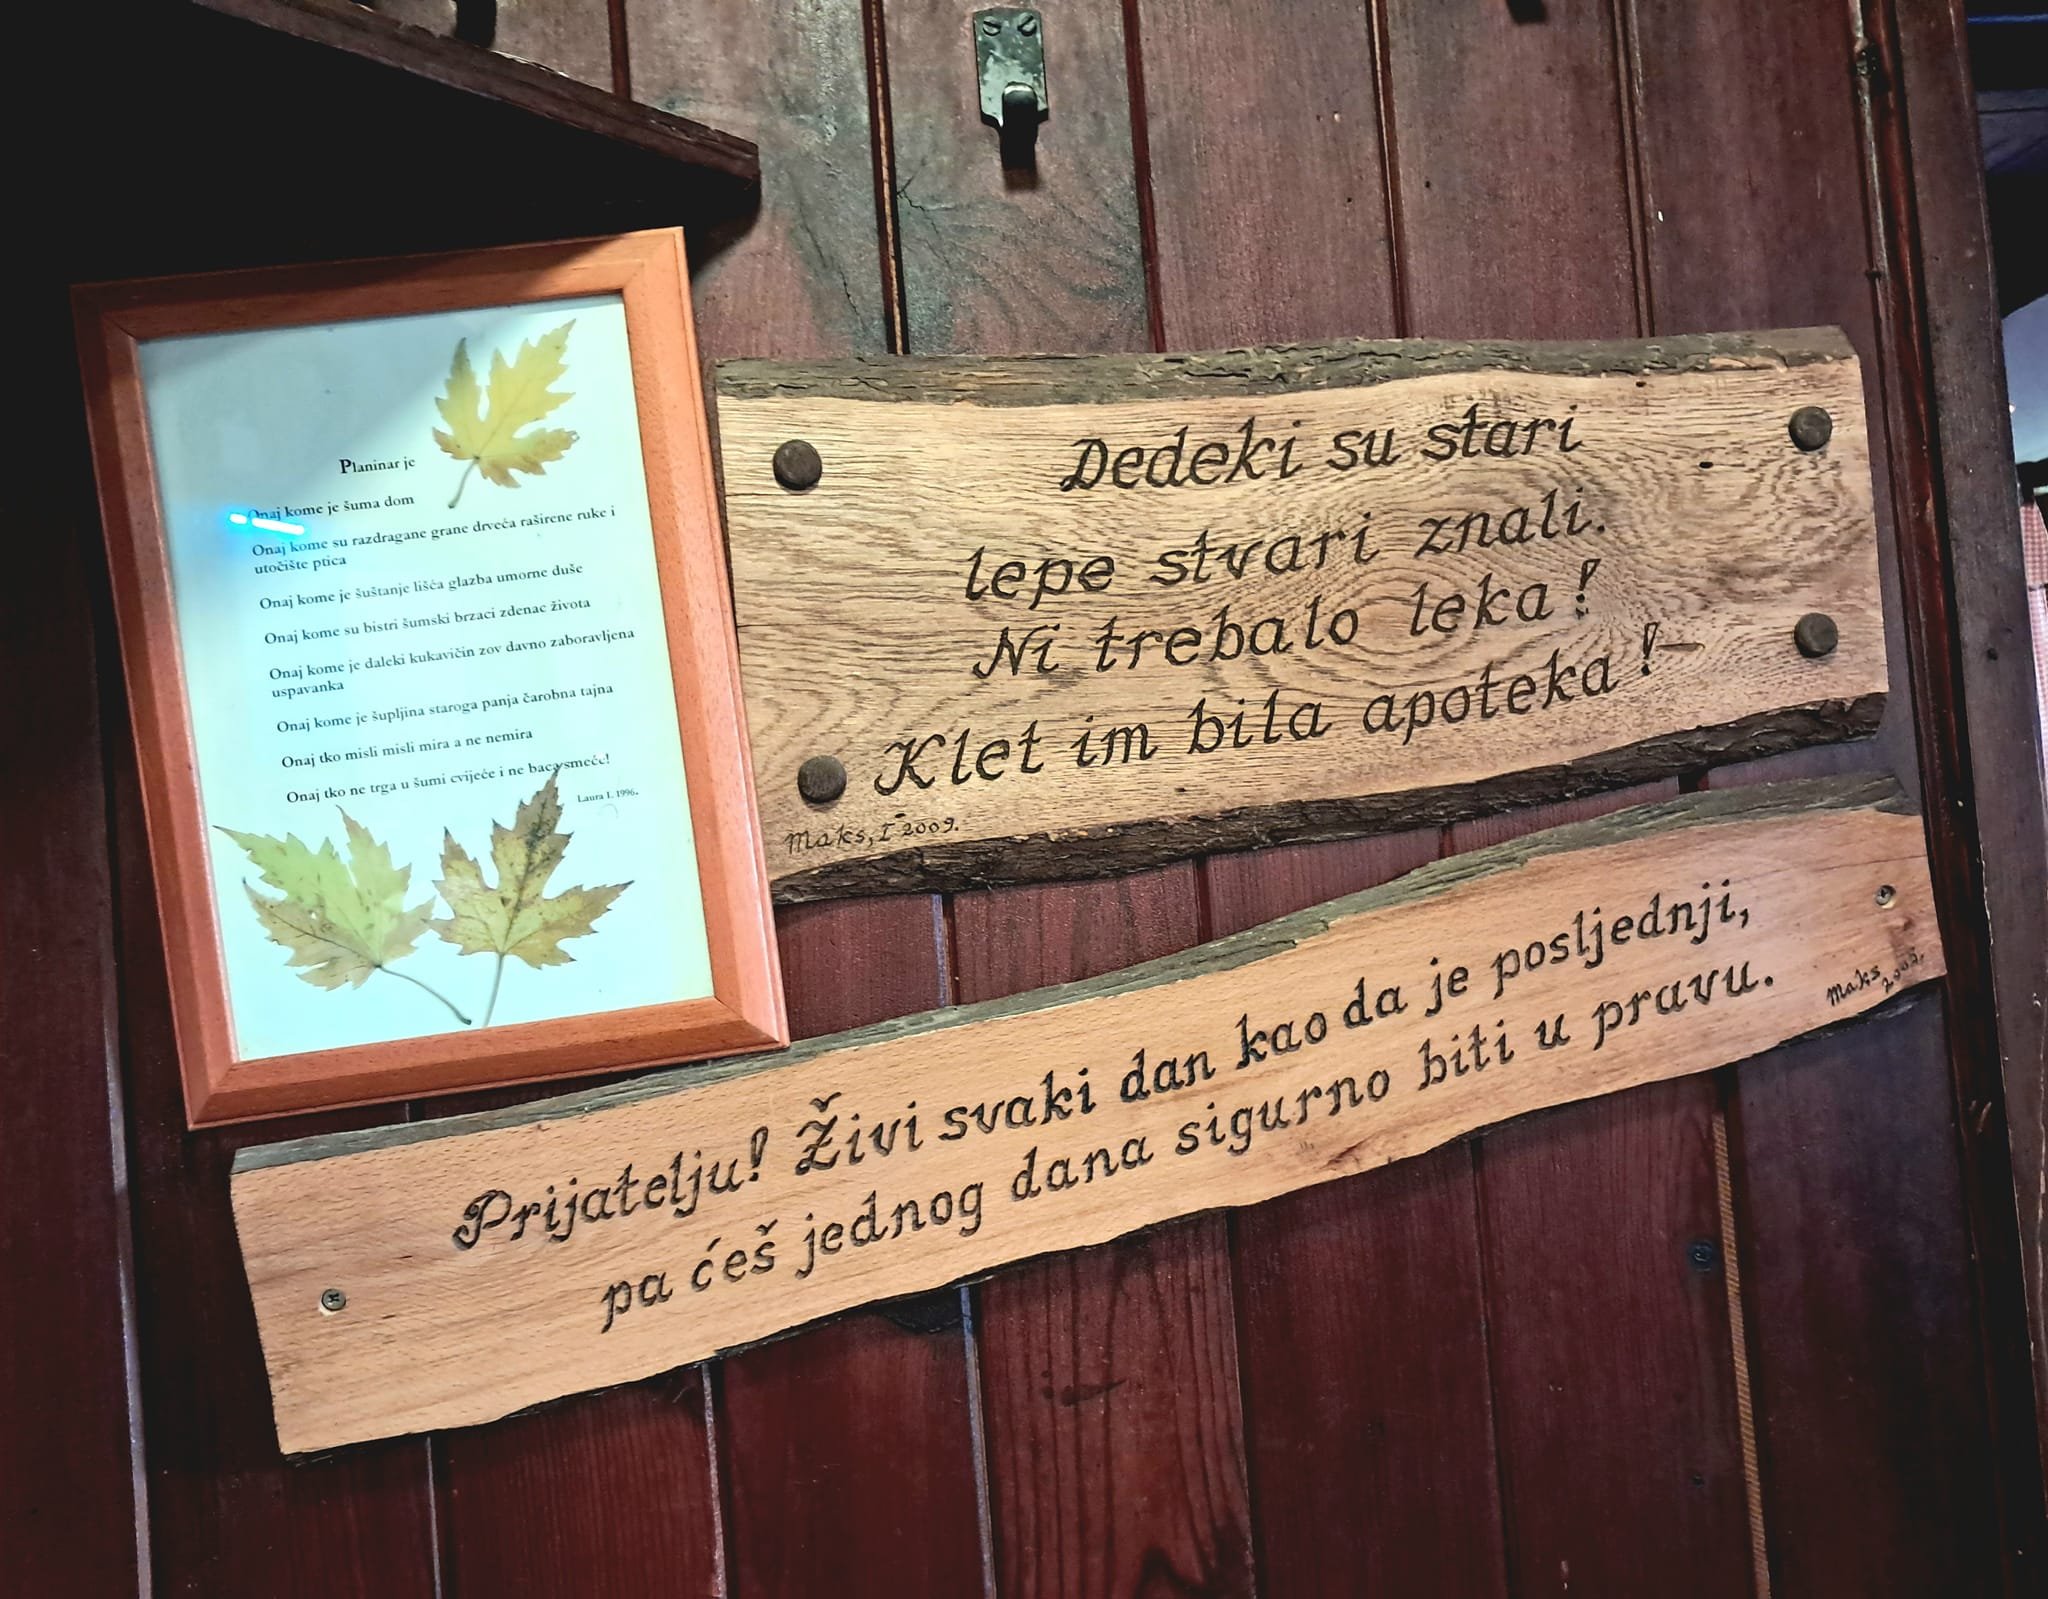 Planinar je
Onaj kome je šuma dom
Onaj kome su razdragane grane drveća raširene ruke i
utočište ptica
Onaj kome je šuštanje lišća glazba umorne duše
Onaj kome su bistri šumski brzaci zdenac života
Onaj kome je daleki kukavičin zov davno zaboravljena
uspavanka
Onaj kome je šupljina staroga panja čarobna tajna
Onaj tko misli misli mira a ne nemira
Onaj tko ne trga u šumi cvijeće i ne baca smeće!
Laura I. 1996.
Dedeki su stari
lepe stvari znali.
Ni trebalo leka!
Klet im bila apoteka!
Maks, I - 2009.
Prijatelju! Živi svaki dan kao da je posljednji,
pa ćeš jednog dana sigurno biti u pravu.
Maks